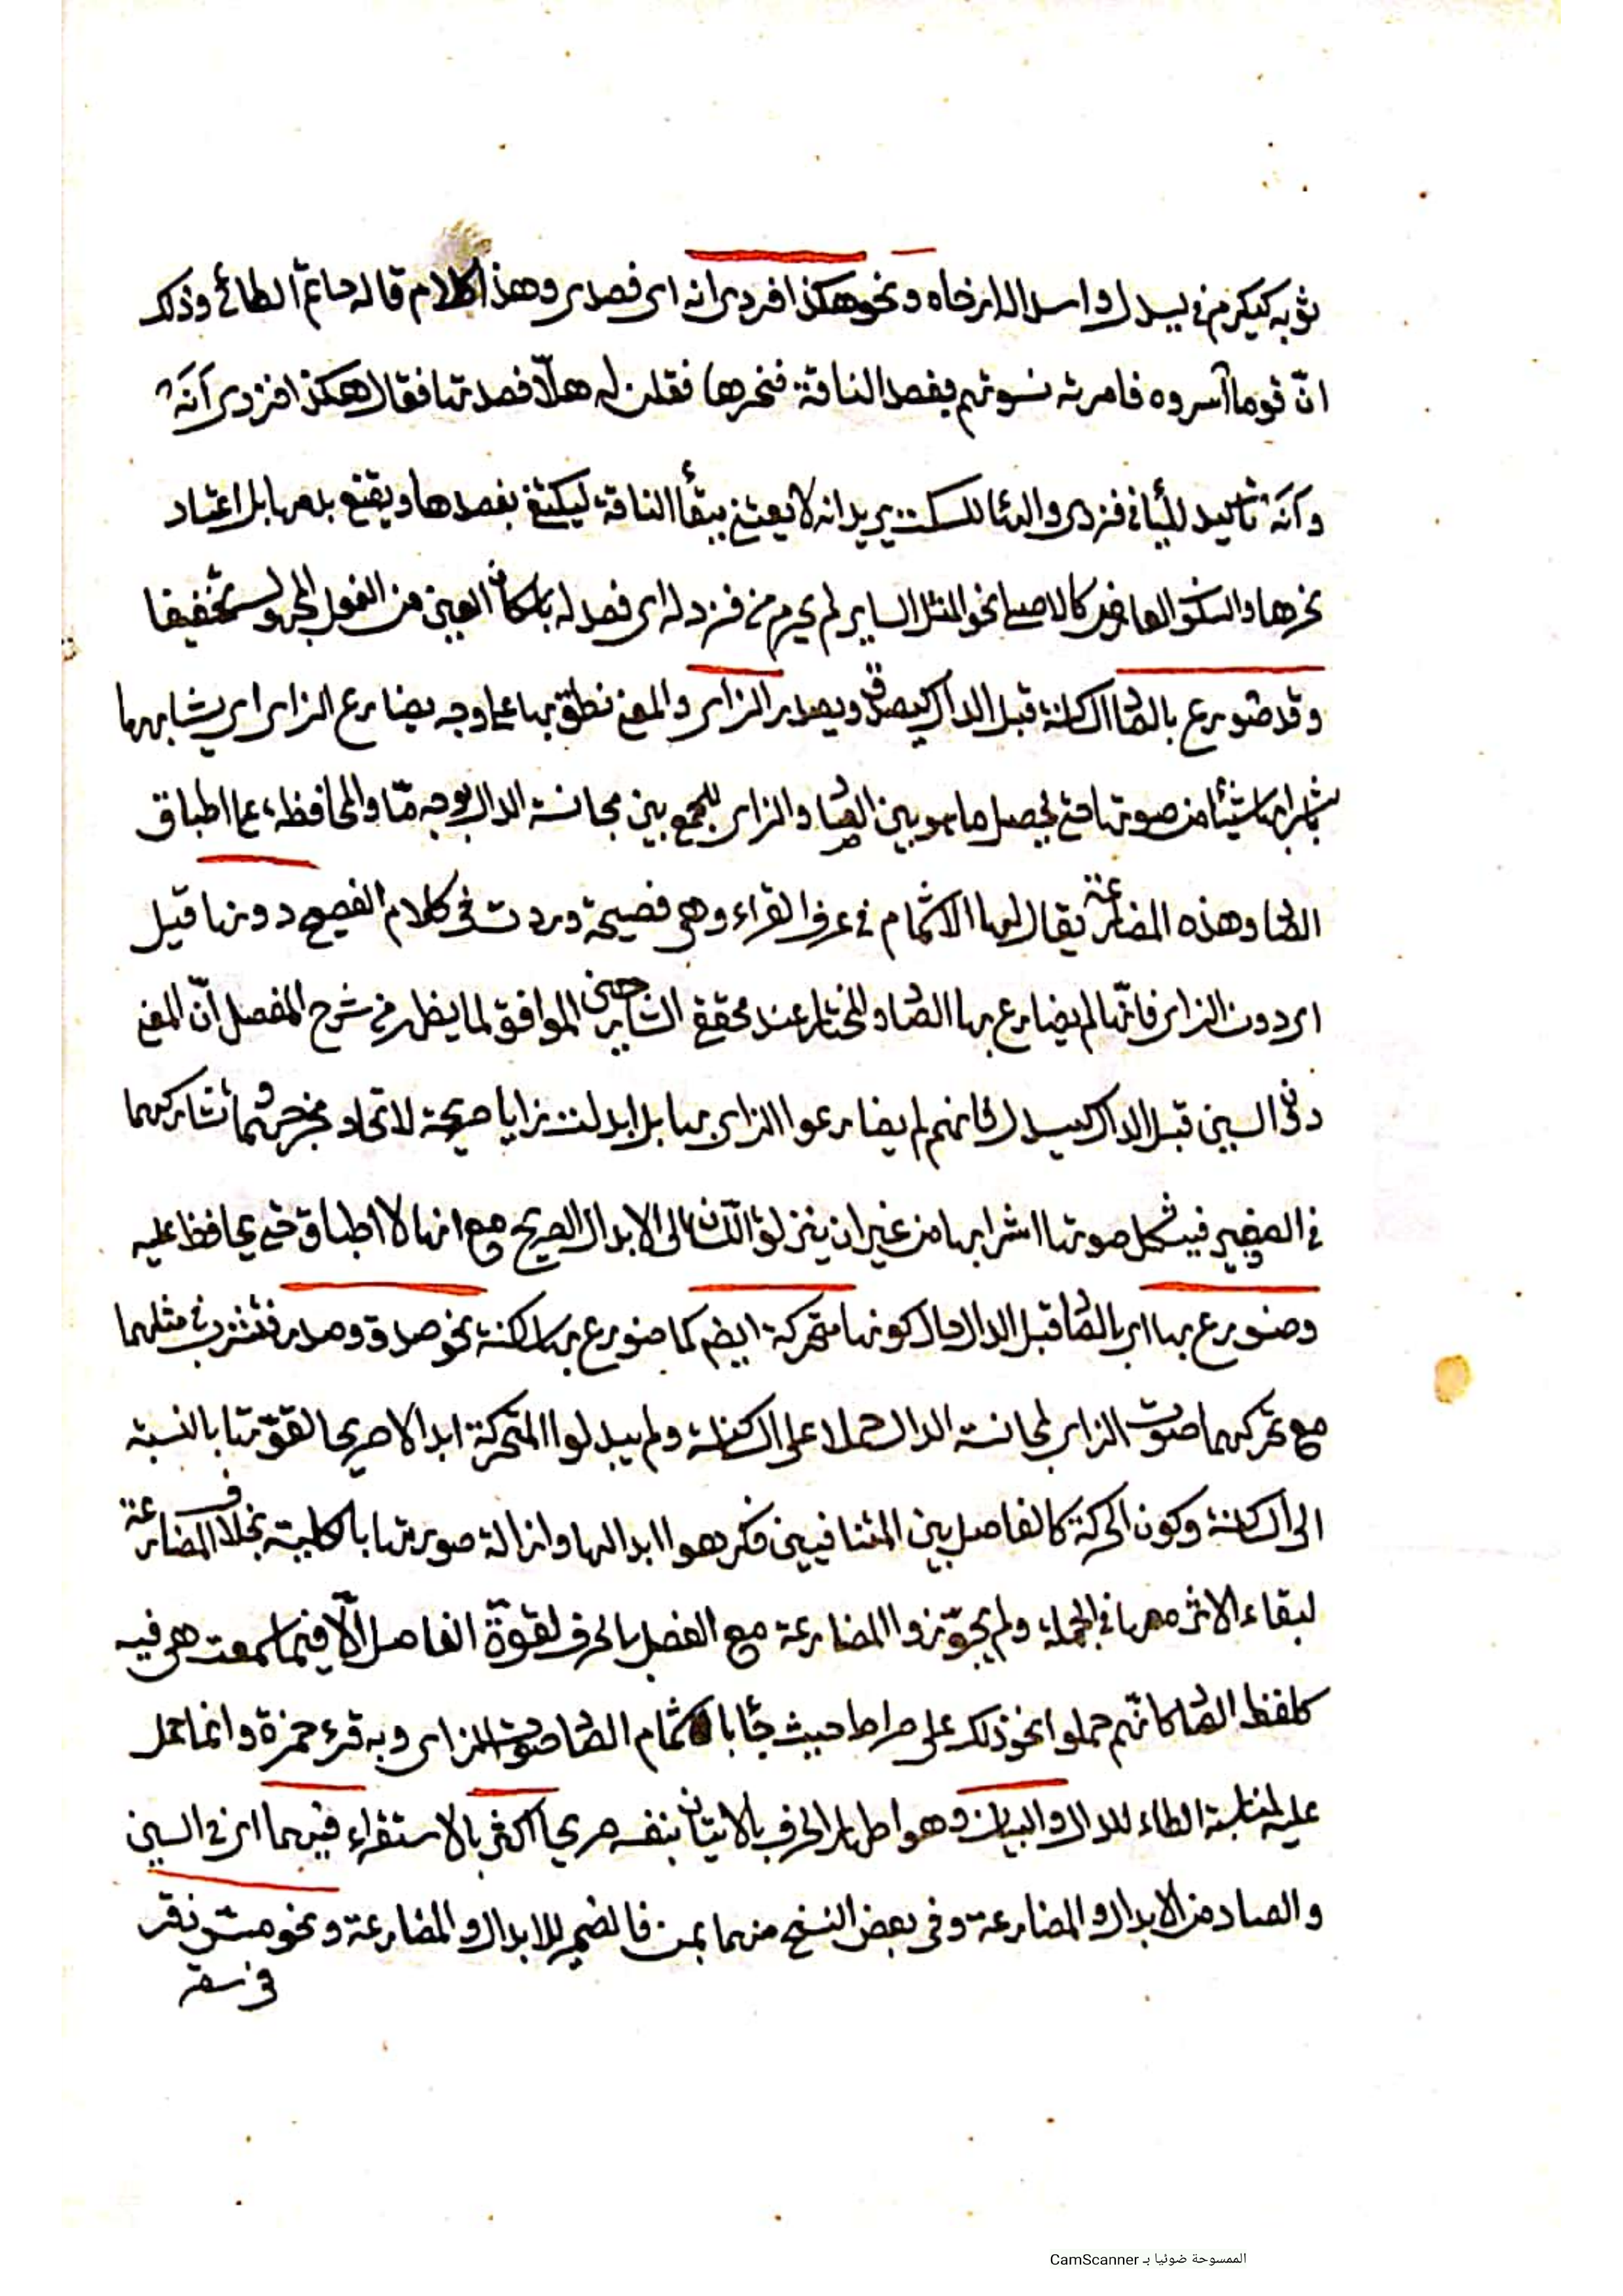 ثوبه كيكرم في يسدل واسدال ارخاه ونحو هكذا فزدى انه اى فصدى وهذا كلام قاله حاتم الطائى وذلك
انّ قوما أسروه فامرته نسوتهم بفصد الناقة فنحرها فقلن له هلّا فصدتها فقال هكذا فزدى أنَهْ
وأنَهْ تأكيد للياء فى فزدى والهاء للسكت يريد انه لا يعتنى ببقاء الناقة ليكتفى بفصدها ويقنع بدمها بل اعتاد
نحرها والسكون العارض كالاصلى نحو المثل الساير لم يحرم من فزد له اى فصد له باسكان العين من الفعل المجهول تخفيفا
وقد ضورع بالصاد الساكنة قبل الدال كيصدق ويصدر الزاى والمعنى نطق بها على وجه يضارع الزاى اى يشابهها
باشرابها شيئا من صوتها حتى يحصل ما هو بين الصاد والزاى للجمع بين مجانسة الدال بوجه مّا والمحافظة على اطباق
الصاد وهذه المضارعة يقال لها الاشمام فى عرف القراء وهى فصيحة وردت فى كلام الفصيح دونها قيل
اى دون الزاى فانّها لم يضارع بها الصاد والمختار عند محقق الشارحين الموافق لما يظهر فى شرح المفصل أنّ المعنى
دون السين قبل الدال كيسدل فانهم لم يضارعوا الزاى بها بل ابدلت زايا صريحة لاتحاد مخرجهما وتشاركهما
فى الصفير فيشكل صوتها اشرابها من غير ان ينزلق اللسان الى الابدال الصريح مع انها لا اطباق حتى يحافظ عليه
وضورع بها اى بالصاد قبل الدال حال كونها متحركة ايضم كما ضورع بها ساكنة نحو صدق وصدر فتشرب فى مثلهما
مع تحركهما صوت الزاى لمجانسة الدال حملا على الساكنة ولم يبدلوا المتحركة ابدالا صريحا لقوّتها بالنسبة
الى الساكنة وكون الحركة كالفاصل بين المتنافيين فكرهوا ابدالها وازالة صورتها بالكلية بخلاف المضارعة
لبقاء الاثر معها فى الجملة ولم يجوّزوا المضارعة مع الفصل بالحرف لقوّة الفاصل الّا فيما سمعت هى فيه
كلفظ الصراط كانّهم حملوا نحو ذلك على صراط حيث جاء باشمام الصاد صوت الزاى وبه قرء حمزة وانما حمل
عليه لمناسبة الطاء للدال والبيان وهو اظهار الحرف بالاتيان بنفسه صريحا اكثر بالاستقراء فيهما اى فى السين
والصاد من الابدال والمضارعة وفى بعض النسخ منهما بمن فالضمير للابدال والمضارعة ونحو مسّ زقر
فى سقر
الممسوحة ضوئيا بـ CamScanner